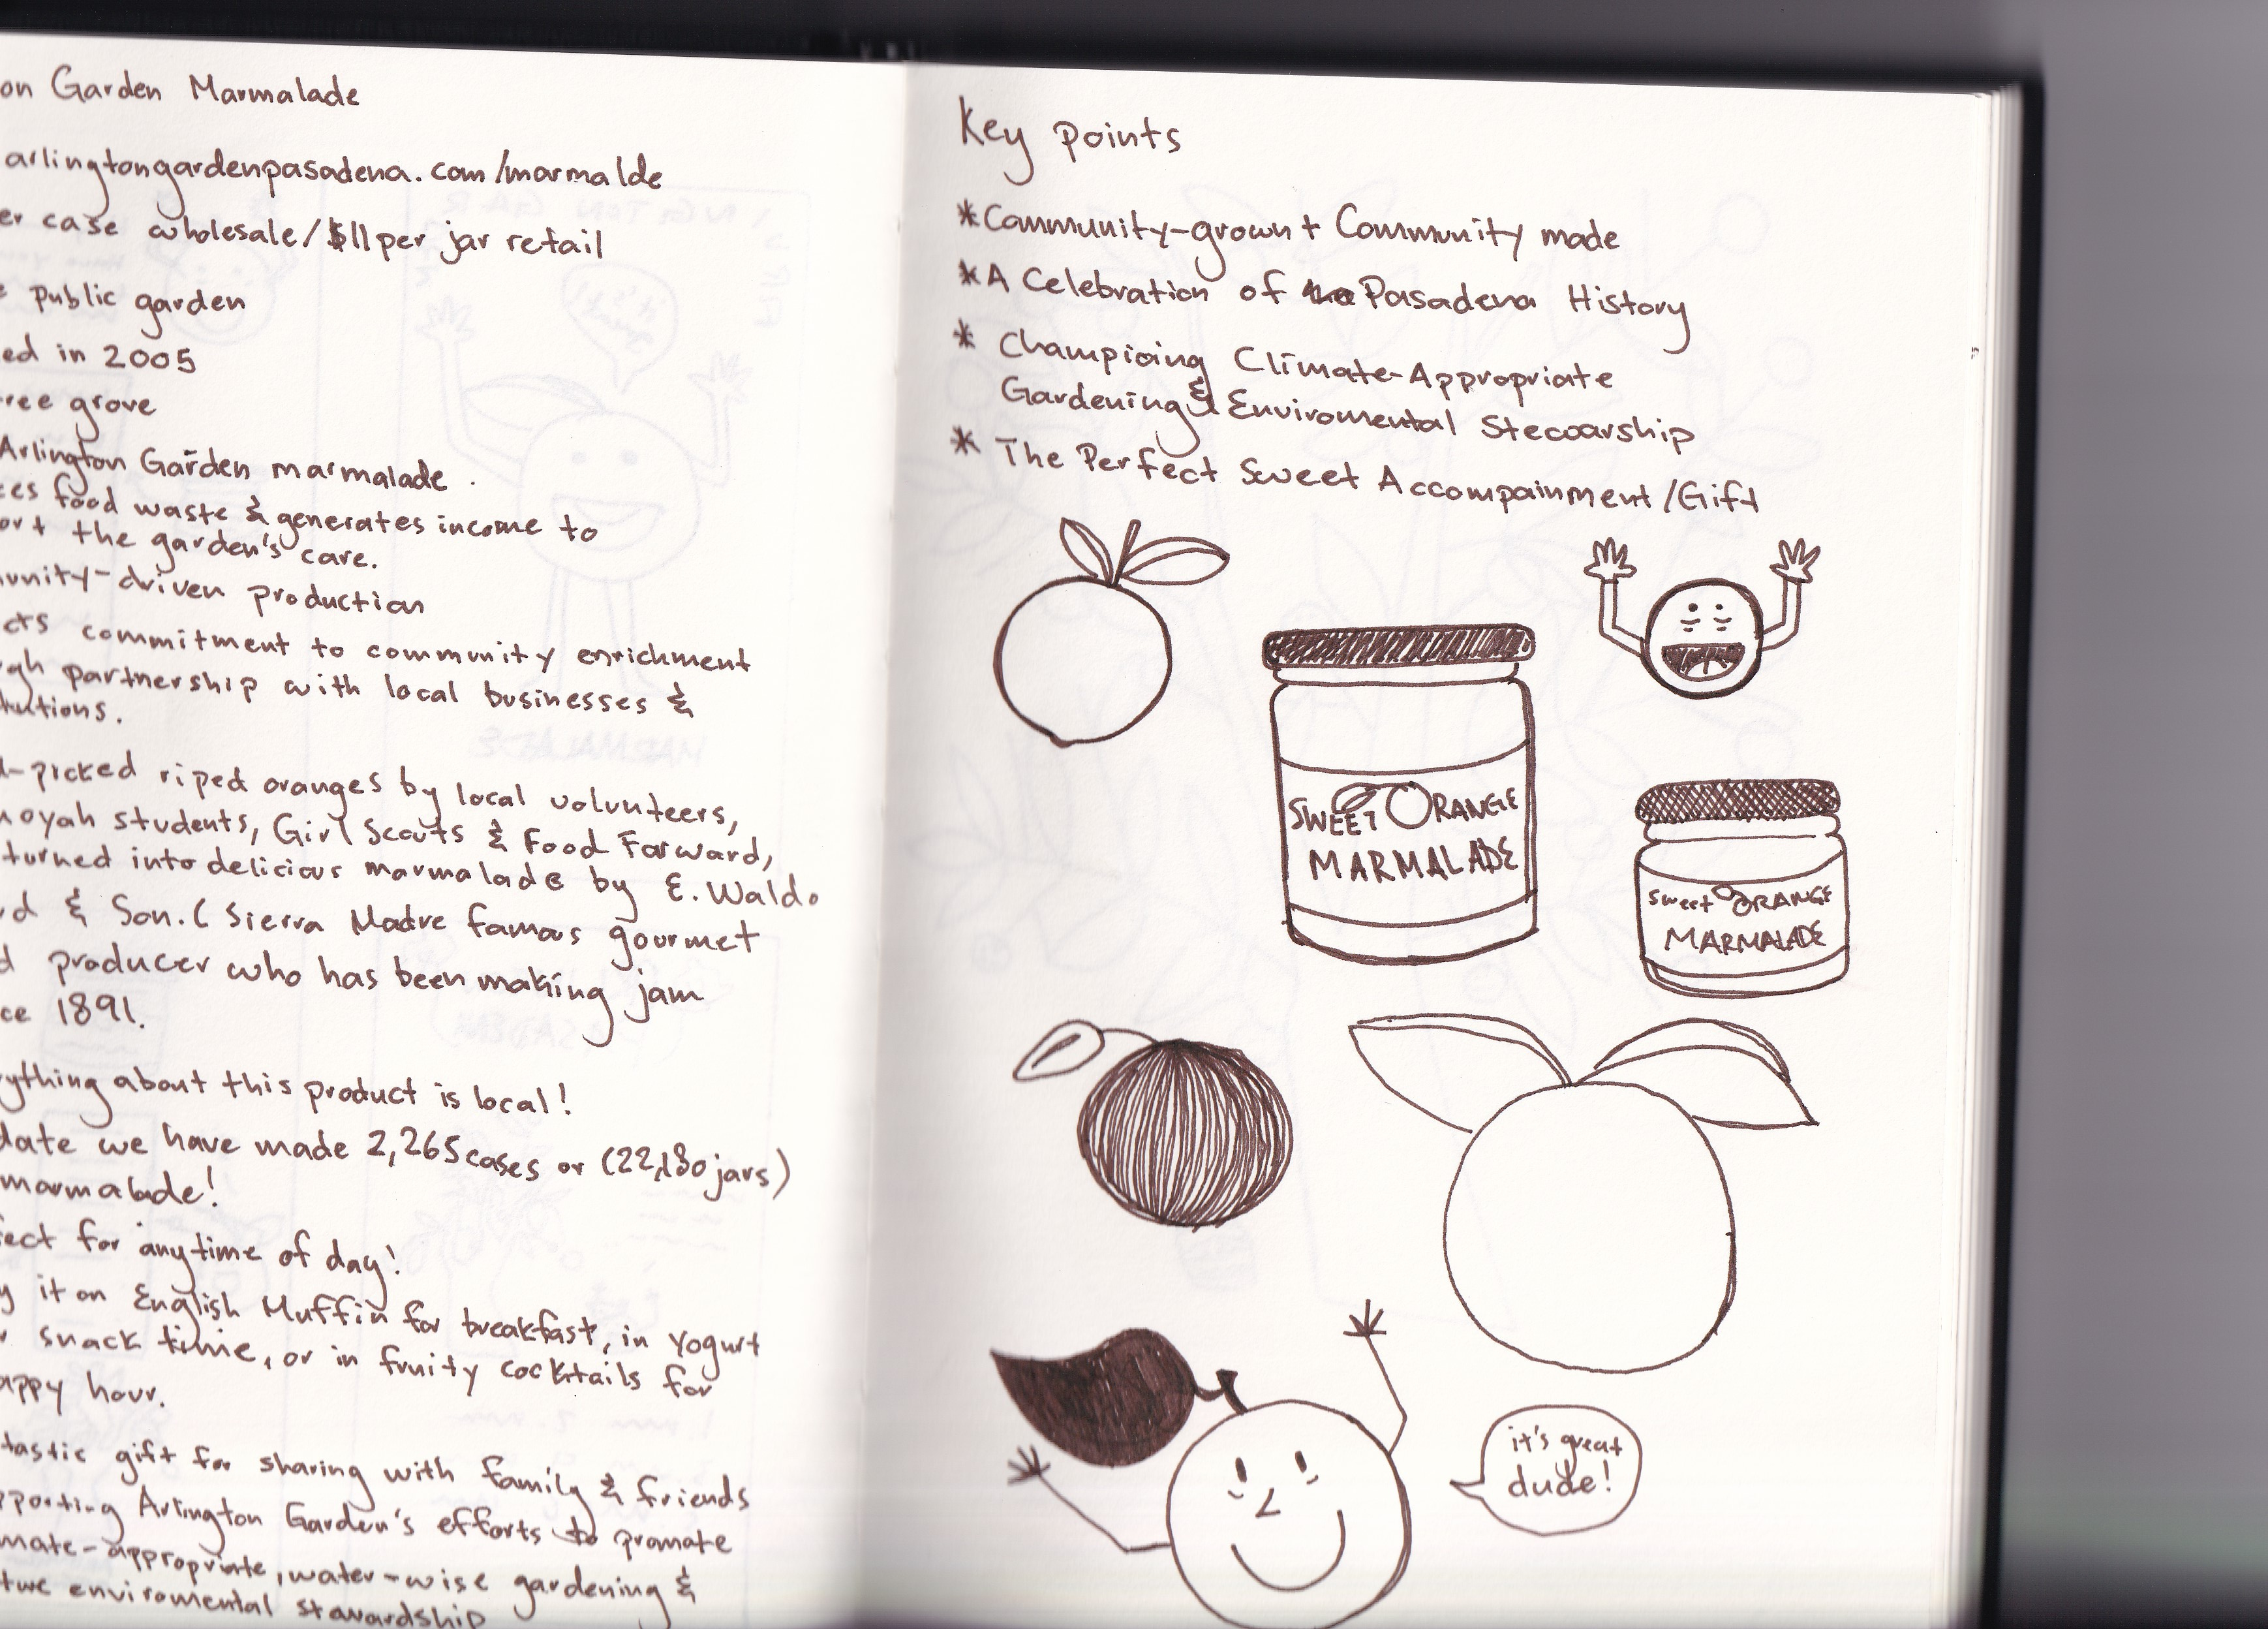 on Garden Marmalade
arlingtongardenpasadena.com/marmalde
er case wholesale/$11 per jar retail
public garden
ed in 2005
ree grove
Arlington Garden marmalade.
ces food waste & generates income to
ort the garden's care.
unity-driven production
cts commitment to community enrichment
gh partnership with local businesses &
tutions.
d-picked riped oranges by local volunteers,
oyah students, Girl Scouts & Food Forward,
turned into delicious marmalade by E. Waldo
rd & Son. (Sierra Madre famous gourmet
d producer who has been making jam
ce 1891.
ything about this product is local!
date we have made 2,265 cases or (22,180 jars)
marmalade!
fect for anytime of day!
y it on English Muffin for breakfast, in yogurt
r snack time, or in fruity cocktails for
appy hour.
tastic gift for sharing with family & friends
pporting Arlington Garden's efforts to promate
mate-appropriate, water-wise gardening &
enviromental stewardship
Key points
*Community-grown + Community made
*A Celebration of Pasadena History
* Champioing Climate-Appropriate
Gardening & Enviromental Stecoarship
* The Perfect Sweet Accompainment/Gift
SWEET ORANGE
MARMALADE
Sweet ORANGE
MARMALADE
it's great
dude!